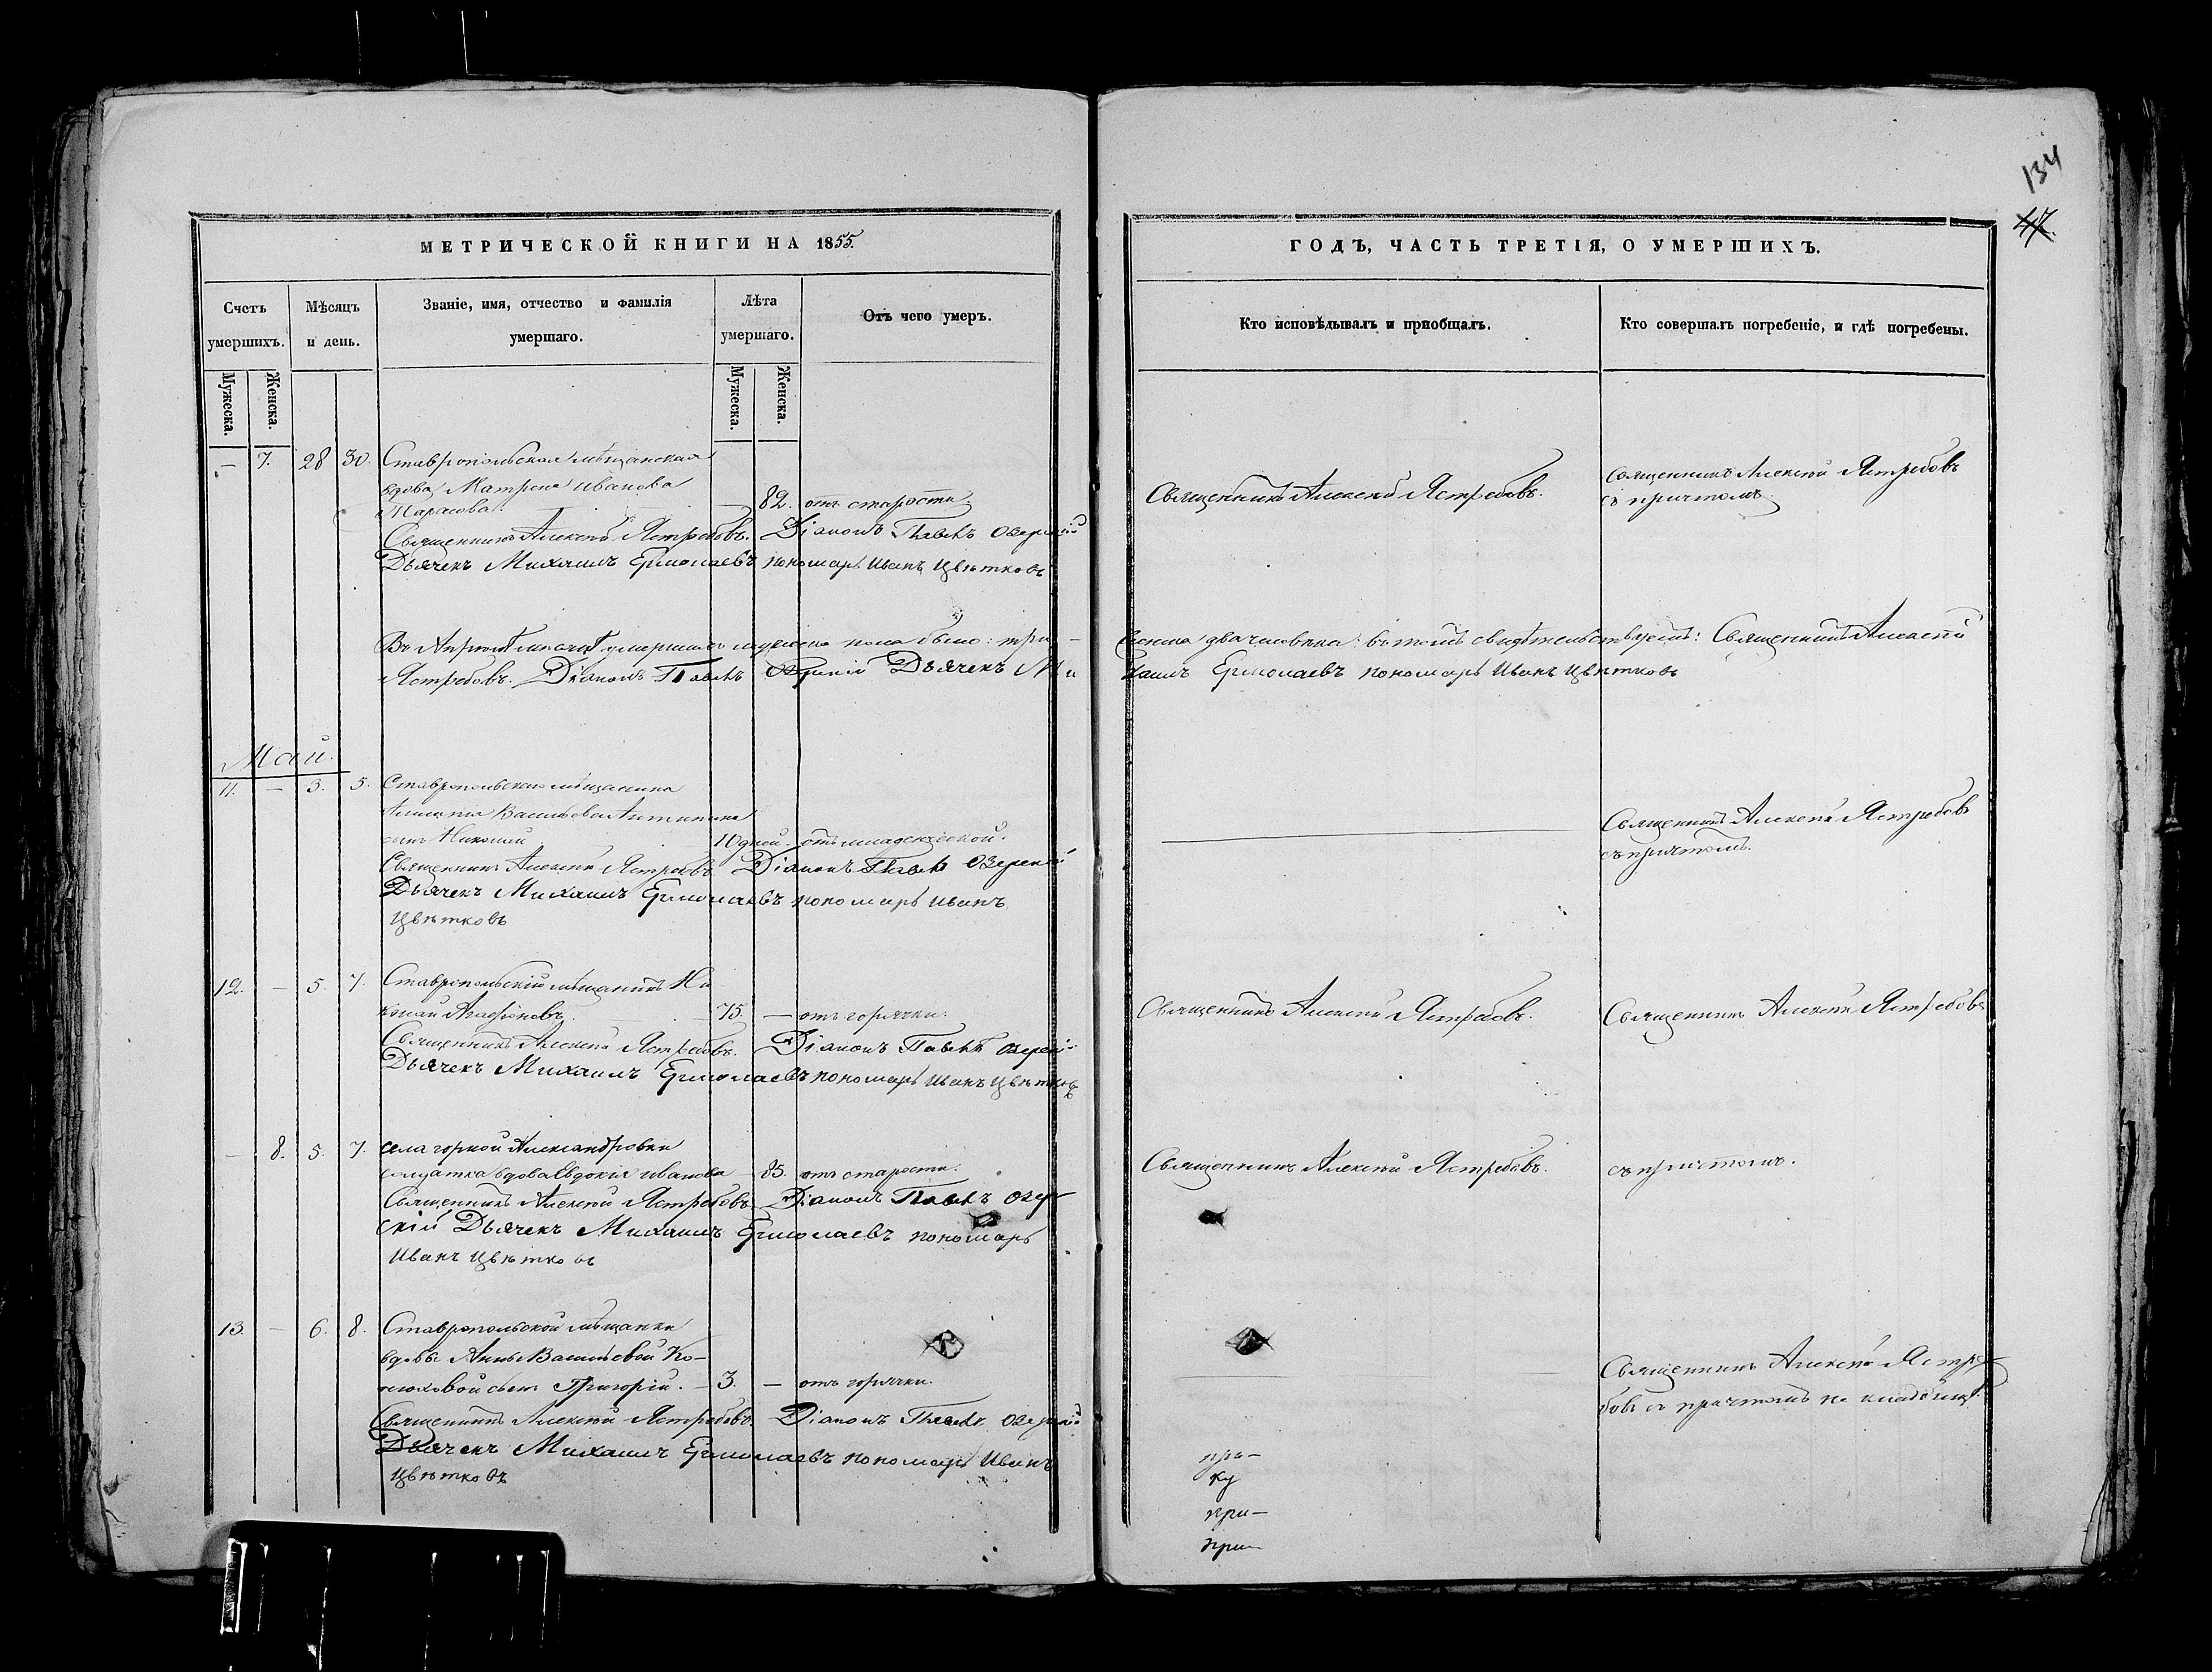 134
47.
МЕТРИЧЕСКОЙ КНИГИ НА 1855.
ГОДЪ, ЧАСТЬ ТРЕТІЯ, О УМЕРШИХЪ.
Счетъ умершихъ.
Мѣсяцъ и день.
Званіе, имя, отчество и фамилія умершаго.
Лѣта умершаго.
Отъ чего умеръ.
Кто исповѣдывалъ и пріобщалъ.
Кто совершалъ погребеніе, и гдѣ погребены.
Мужеска.
Женска.
Мужеска.
Женска.
— 7. 28 30. Ставропольская мѣщанская
вдова Матрена Иванова
82. отъ старости.
Священникъ Алексѣй Ястребовъ.
Священникъ Алексѣй Ястребовъ
съ причтомъ.
Священникъ Алексѣй Ястребовъ. Діаконъ Павелъ Озерскій
Дьячекъ Михаилъ Ермолаевъ пономарь Иванъ Цвѣтковъ
Въ Апрѣлѣ мѣсяцѣ умершихъ мужеска пола было: три, — женска два человѣка: въ томъ свидѣтельствуемъ: Священникъ Алексѣй
Ястребовъ. Діаконъ Павелъ Озерскій Дьячекъ Михаилъ Ермолаевъ пономарь Иванъ Цвѣтковъ
Май.
11. — 3. 5. Ставропольскаго мѣщанина
Васильева
сынъ Николай 10 дней. отъ младенческой.
Священникъ Алексѣй Ястребовъ
съ причтомъ.
Священникъ Алексѣй Ястребовъ. Діаконъ Павелъ Озерскій
Дьячекъ Михаилъ Ермолаевъ пономарь Иванъ
Цвѣтковъ
12. — 5. 7. Ставропольскій мѣщанинъ Ни
колай Агафоновъ. 75. — отъ горячки.
Священникъ Алексѣй Ястребовъ.
Священникъ Алексѣй Ястребовъ
Священникъ Алексѣй Ястребовъ. Діаконъ Павелъ
Дьячекъ Михаилъ Ермолаевъ пономарь Иванъ Цвѣтковъ
— 8. 5. 7. села горной Александровки
солдатка вдова Евдокія Иванова 85. отъ старости.
Священникъ Алексѣй Ястребовъ.
съ причтомъ.
Священникъ Алексѣй Ястребовъ. Діаконъ Павелъ Озер
скій Дьячекъ Михаилъ Ермолаевъ пономарь
Иванъ Цвѣтковъ
13. — 6. 8. Ставропольской мѣщанки
вдовы Анны Васильевой Ко—
сынъ Григорій. 3. — отъ горячки.
Священникъ Алексѣй Ястре
бовъ съ причтомъ на кладбищѣ.
Священникъ Алексѣй Ястребовъ. Діаконъ Павелъ Озерскій
Дьячекъ Михаилъ Ермолаевъ пономарь Иванъ
Цвѣтковъ
ку
при—
при—